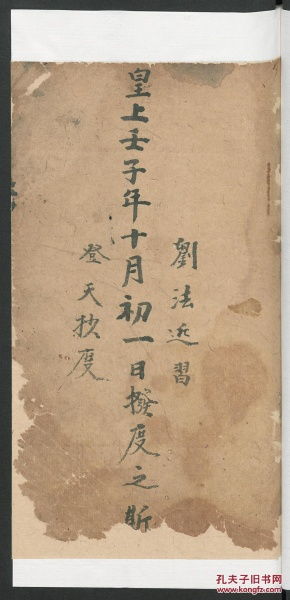 劉法近習
皇上壬子年十月初一日撥度之所
登天抄度
孔夫子旧书网
www.kongfz.com